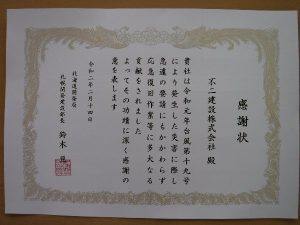 感謝状
不二建設株式会社 殿
貴社は令和元年台風第十九号
により発生した災害に際し
急遽の要請にもかかわらず
応急復旧作業等に多大なる
貢献をされました
よってその功績に深く感謝の
意を表します
令和二年二月十四日
北海道開発局
札幌開発建設部長 鈴木